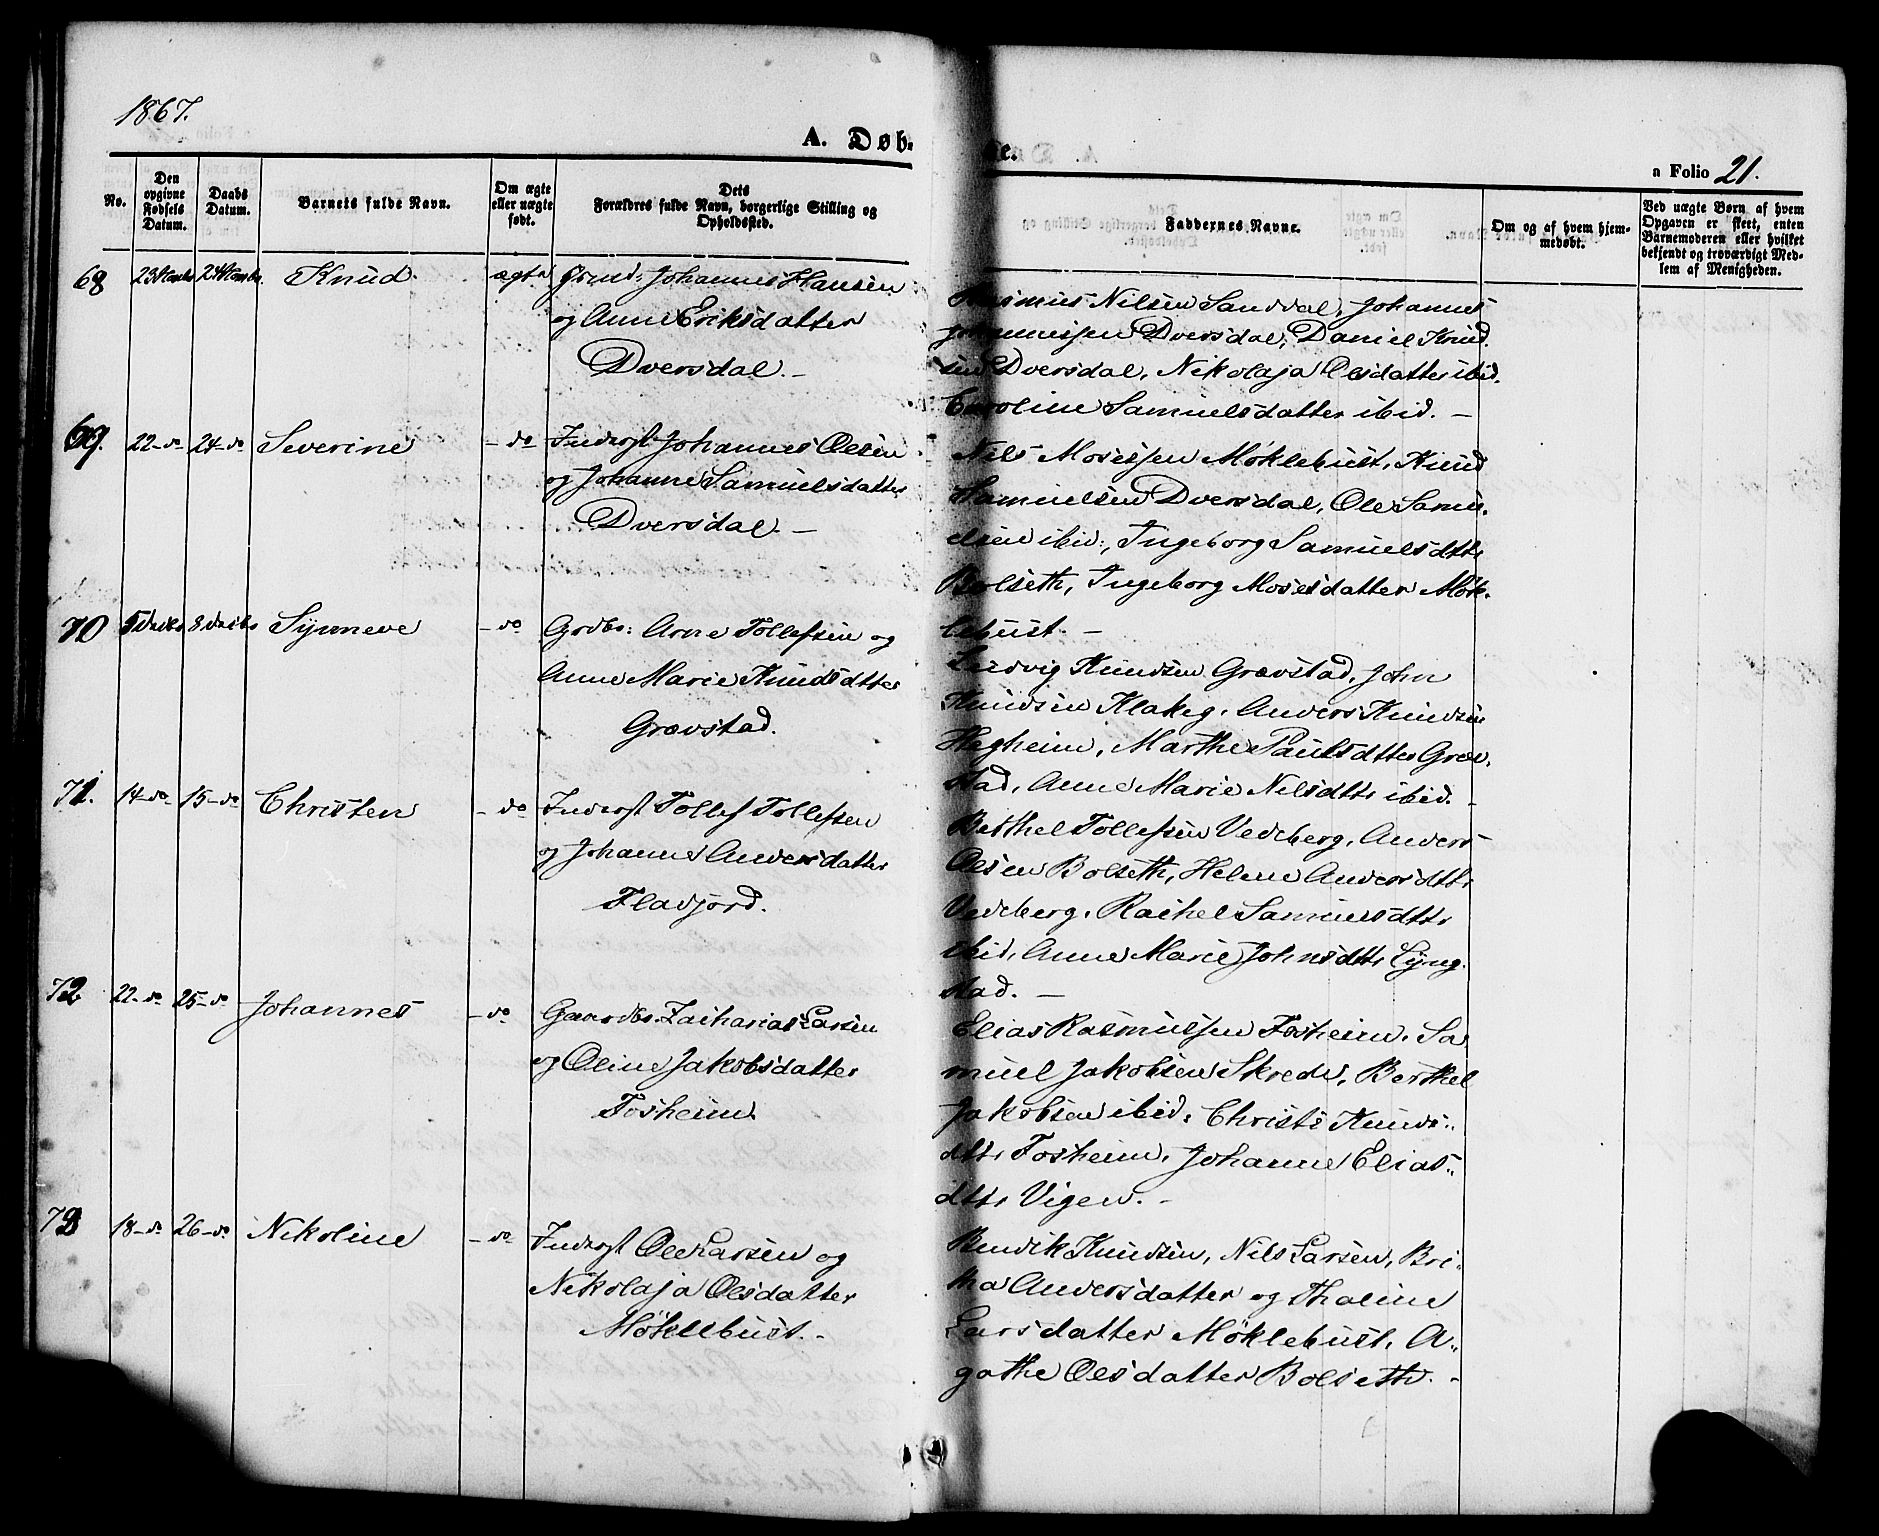 1867.
A. Døb-
te.
n Folio 21.
No.
Den opgivne Fødsels Datum.
Daabs Datum.
Barnets fulde Navn.
Om ægte eller uægte født.
Dets Forældres fulde Navn, borgerlige Stilling og Opholdssted.
Faddernes Navne.
Om og af hvem hjemmedøbt.
Ved uægte Børn af hvem Opgaven er skeet, enten Barnemoderen eller hvilket bekjendt og troværdigt Medlem af Menigheden.
68 Knud ægte Johannes Hansen
og Anne Eriksdatter
Dversdal. –
Rasmus Nilsen Sandal, Johannes
Johannesen Dversdal, Daniel Knud-
sen Dversdal, Nikolaja Olsdatter ibid.
Caroline Samuelsdatter ibid. –
69. 22 – do 24 – do Severine – do Inderst Johannes Olsen
og Johanne Samuelsdatter
Dversdal. –
Nils Mosessen Møklebust, Knud
Samuelsen Dversdal, Ole Samu-
elsen ibid:, Ingeborg Samuelsdtr
Bolseth, Ingeborg Mosesdatter Møk-
lebust. –
70 5 Decbr 8 Decbr Synneve – do Grdbr: Arne Tollefsen og
Anne Marie Knudsdtter
Grovstad.
Ludvig Knudsen Grovstad, John
Knudsen Klakeg, Anders Knudsen
Hegheim, Marthe Paulsdtter Grov-
stad, Anne Marie Nilsdtr ibid. –
71. 14 – do 15 – do Christen – do Inderst Tollef Tollefsen
og Johanne Andersdatter
Fladjord.
Berthel Tollefsen Vedeberg, Anders
Olsen Bolseth, Helene Andersdtr
Vedeberg, Rachel Samuelsdtr
ibid, Anne Marie Johnsdtr Lyng-
stad. –
72 22 – do 25 – do Johannes – do Gaardbr. Zacharias Larsen
og Oline Jakobsdatter
Fosheim
Elias Rasmussen Fosheim, Sa-
muel Jakobsen Skrede, Berthel
Jakobsen ibid: Christi Knuds-
dtr Fosheim, Johanne Elias-
dtr Vigen. –
73 18 – do 26 – do Nikoline – do Inderst Ole Larsen og
Nikolaja Olsdatter
Møklebust. –
Bendik Knudsen, Nils Larsen, Bri-
tha Andersdatter og Thaline
Larsdatter Møklebust, A-
gathe Olsdatter Bolseth. –